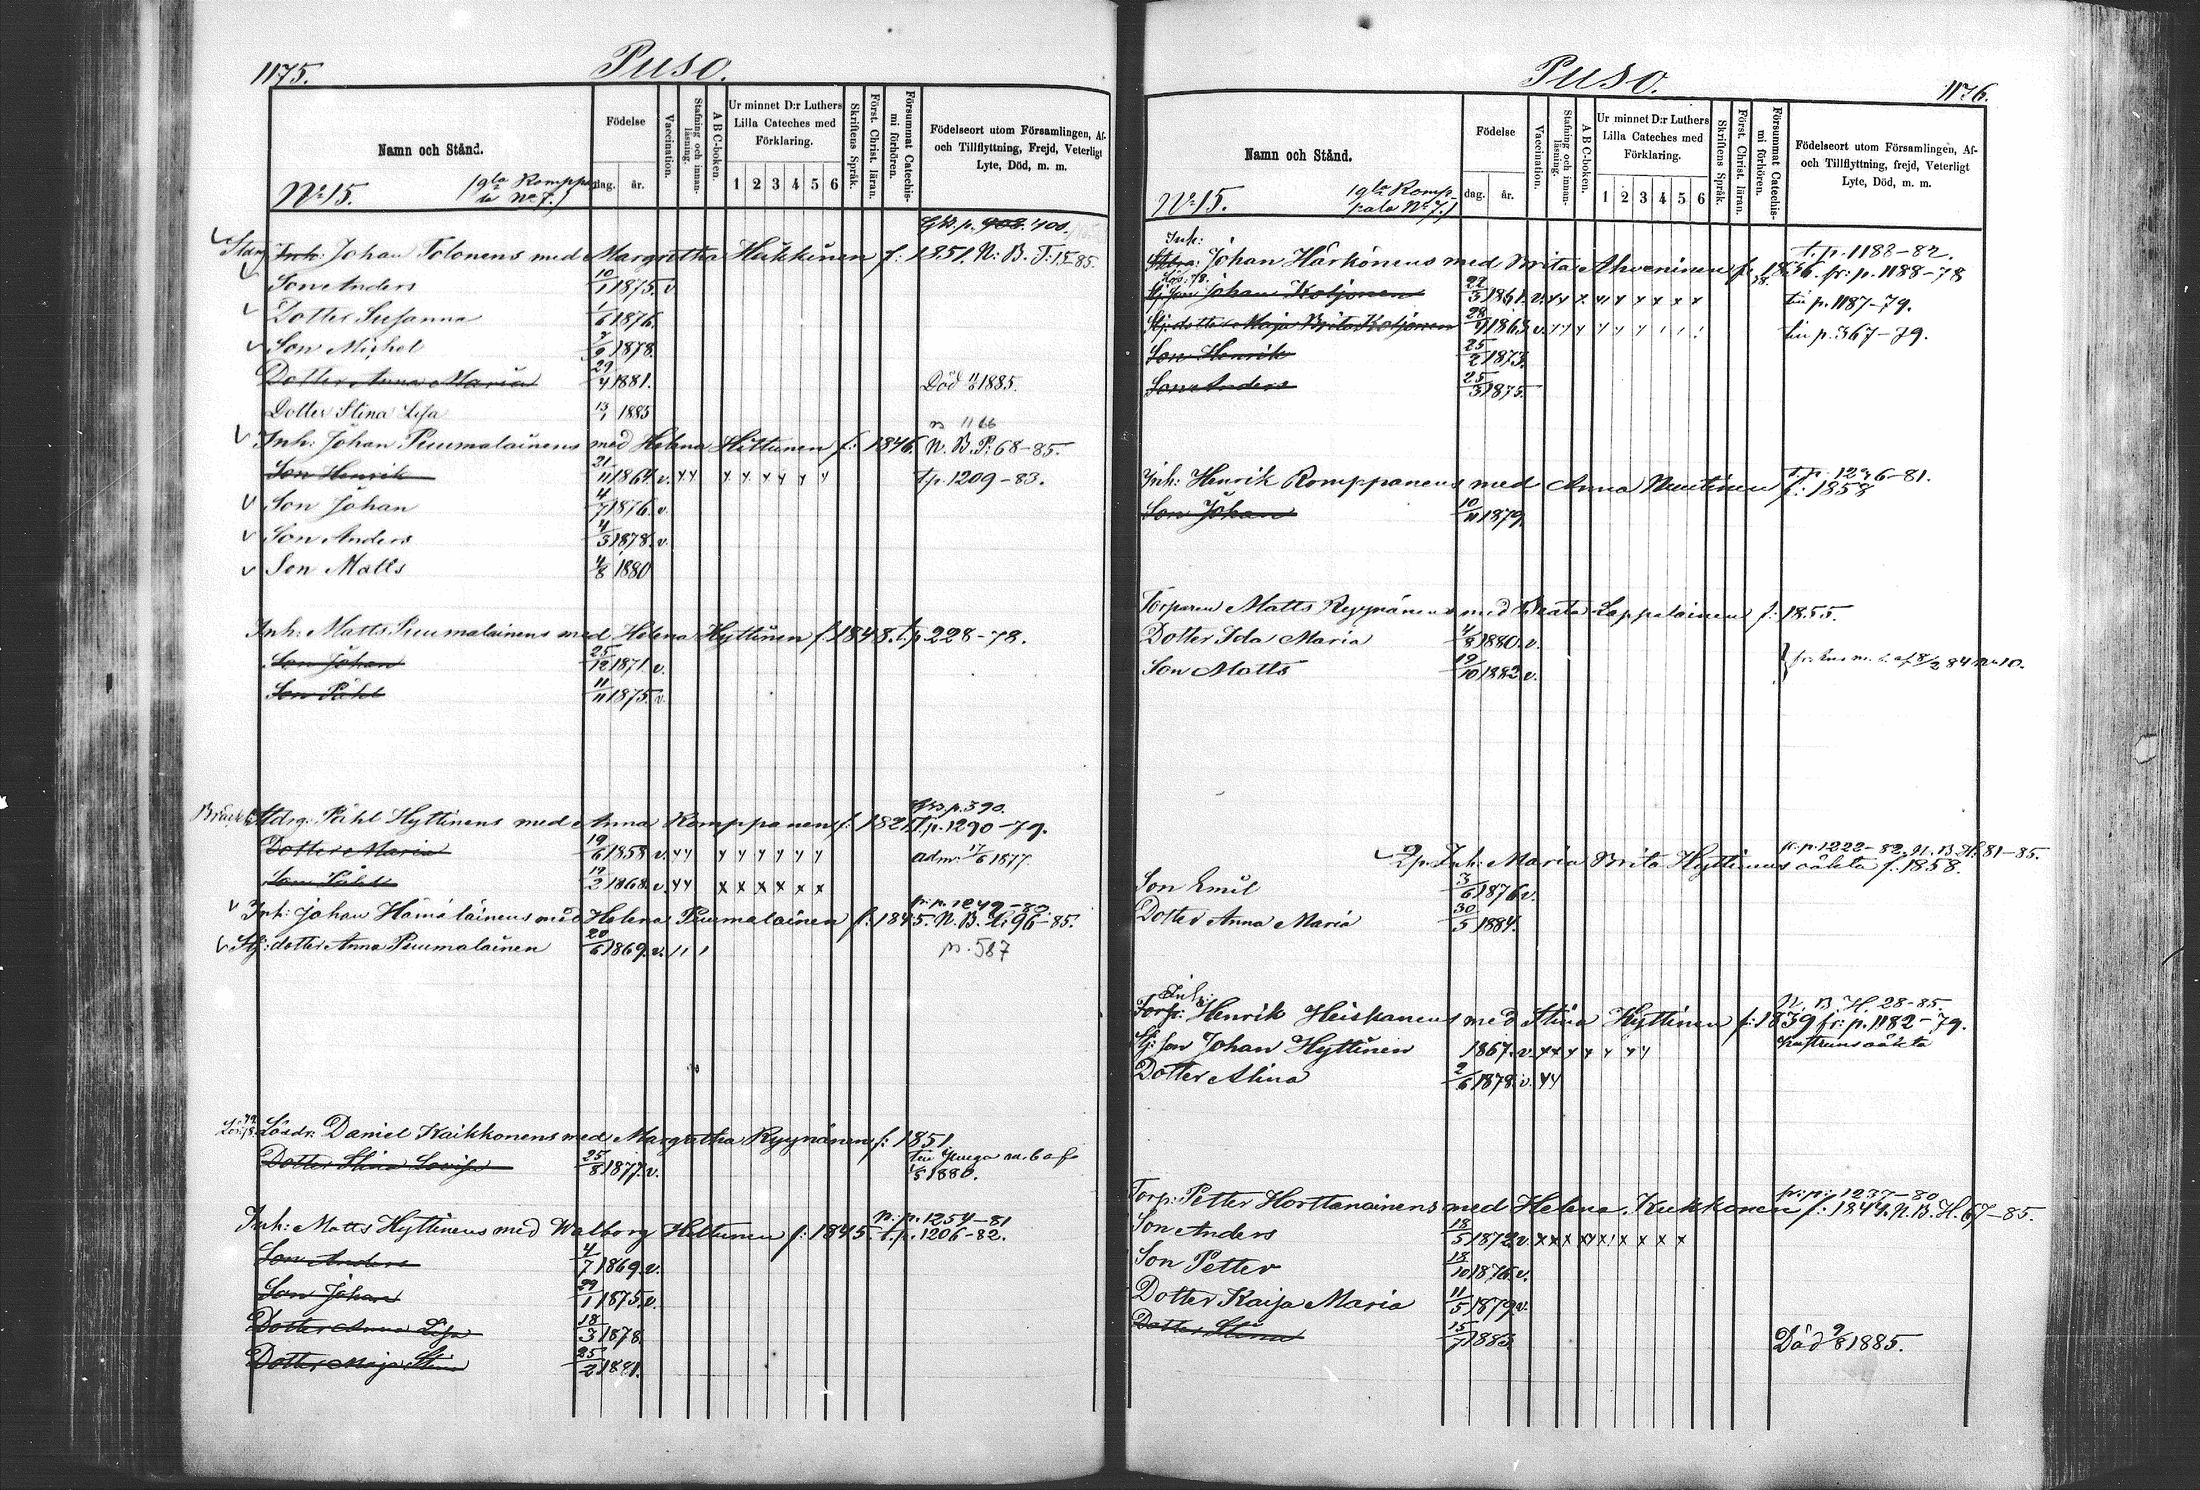 1175.
Puso.
Namn och Stånd.
Födelse
dag. år.
Vaccination.
Stafning och innanläsning.
ABC-boken.
Ur minnet D:r Luthers Lilla Cateches med Förklaring.
1 2 3 4 5 6
Skriftens Språk.
Först. Christ. läran.
Försummat Catechismi förhören.
Födelseort utom Församlingen, Af- och Tillflyttning, Frejd, Veterligt Lyte, Död, m. m.
No 15.
No 7.)
p. 408. 400.
Inh: Johan Tolonens med Margretha Hukkinen f: 1851. N: B. T: 15-85
Son Anders 10/1 1875. v
Dotter Susanna 1/6 1876.
Son Michel 1878.
Dotter Anna Maria 29/4 1881. Död 1885.
Dotter Stina Lisa 13/1 1883
1166
Inh: Johan Puumalainens med Helena Hiltunen f: 1846. N. B. P: 68-85.
Son Henrik 21/11 1864. v. t.p. 1209-83.
Son Johan 4/7 1876. v.
Son Anders 4/5 1878. v.
Son Matts 4/8 1880
Inh: Matts Puumalainens med Helena Hyttinen f. 1848. t.p 228-78.
Son Johan 25/12 1871. v.
Son Påhl 11/11 1875. v.
p. 390.
Påhl Hyttinens med Anna Romppanen f: 182 t.p. 1290-79.
Dotter Maria 19/6 1858 v. adm. 17/6 1877.
Son Påhl 19/2 1868. v.
fr. p. 1249-82
Inh: Johan Hämäläinens med Helena Puumalainen f: 1845. N. B. H: 96-85.
Stj: dotter Anna Puumalainen 20/6 1869. v. p. 587
Lösdr. Daniel Kaikkonens med Margretha Ryynänen f: 1851
Dotter Stina Lovisa 25/8 1877. v. 1880.
p. 1254-81
Inh: Matts Hyttinens med Walborg Hiltunen f: 1845. t.p. 1206-82.
Son Anders 4/7 1869. v.
Son Johan 29/1 1875. v.
Dotter Anna Lisa 18/3 1878.
Dotter Maja Stina 25/2 1881.
Puso.
1176.
Namn och Stånd.
Födelse
dag. år.
Vaccination.
Stafning och innanläsning.
ABC-boken.
Ur minnet D:r Luthers Lilla Cateches med Förklaring.
1 2 3 4 5 6
Skriftens Språk.
Först. Christ. läran.
Försummat Catechismi förhören.
Födelseort utom Församlingen, Af- och Tillflyttning, frejd, Veterligt Lyte, Död, m. m.
No 15.
No 7.)
Inh: t.p. 1183-82.
Johan Härkönens med Brita Ahveninen f. 1836. fr: p. 1188-78
Stj: son Johan Kotjonen 22/3 1861. v. till p. 1187-79.
Stj: dotter Maja Brita Kotjonen 28/9 1863. v. till p. 367-79.
Son Henrik 25/2 1873.
Son Anders 25/3 1875.
Inh: Henrik Romppanens med Anna Nuutinen f: 1858
Son Johan 10/11 1879.
Torparen Matts Ryynänens med Beata Lappalainen f: 1855.
Dotter Ida Maria 4/8 1880. v.
Son Matts 19/10 1882 v.
fr. p. 1222-82. N. B. H: 81-85.
Inh: Maria Brita Hyttinens oäkta f. 1858.
Son Emil 3/6 1876 v.
Dotter Anna Maria 30/5 1884.
Inh: N. B. H. 28-85.
Torp: Henrik Heiskanens med Stina Hyttinen f: 1839 fr: p. 1182-79.
Stj: son Johan Hyttinen 1867. v. hustruns oäkta
Dotter Alina 2/6 1878. v.
fr: p: 1237-80
Torp: Petter Horttanainens med Helena Kukkonen f: 1844. N. B. H. 67-85.
Son Anders 18/5 1872 v.
Son Petter 18/10 1876. v.
Dotter Kaisa Maria 11/5 1879 v.
Dotter Stina 15/7 1883. Död 9/8 1885.